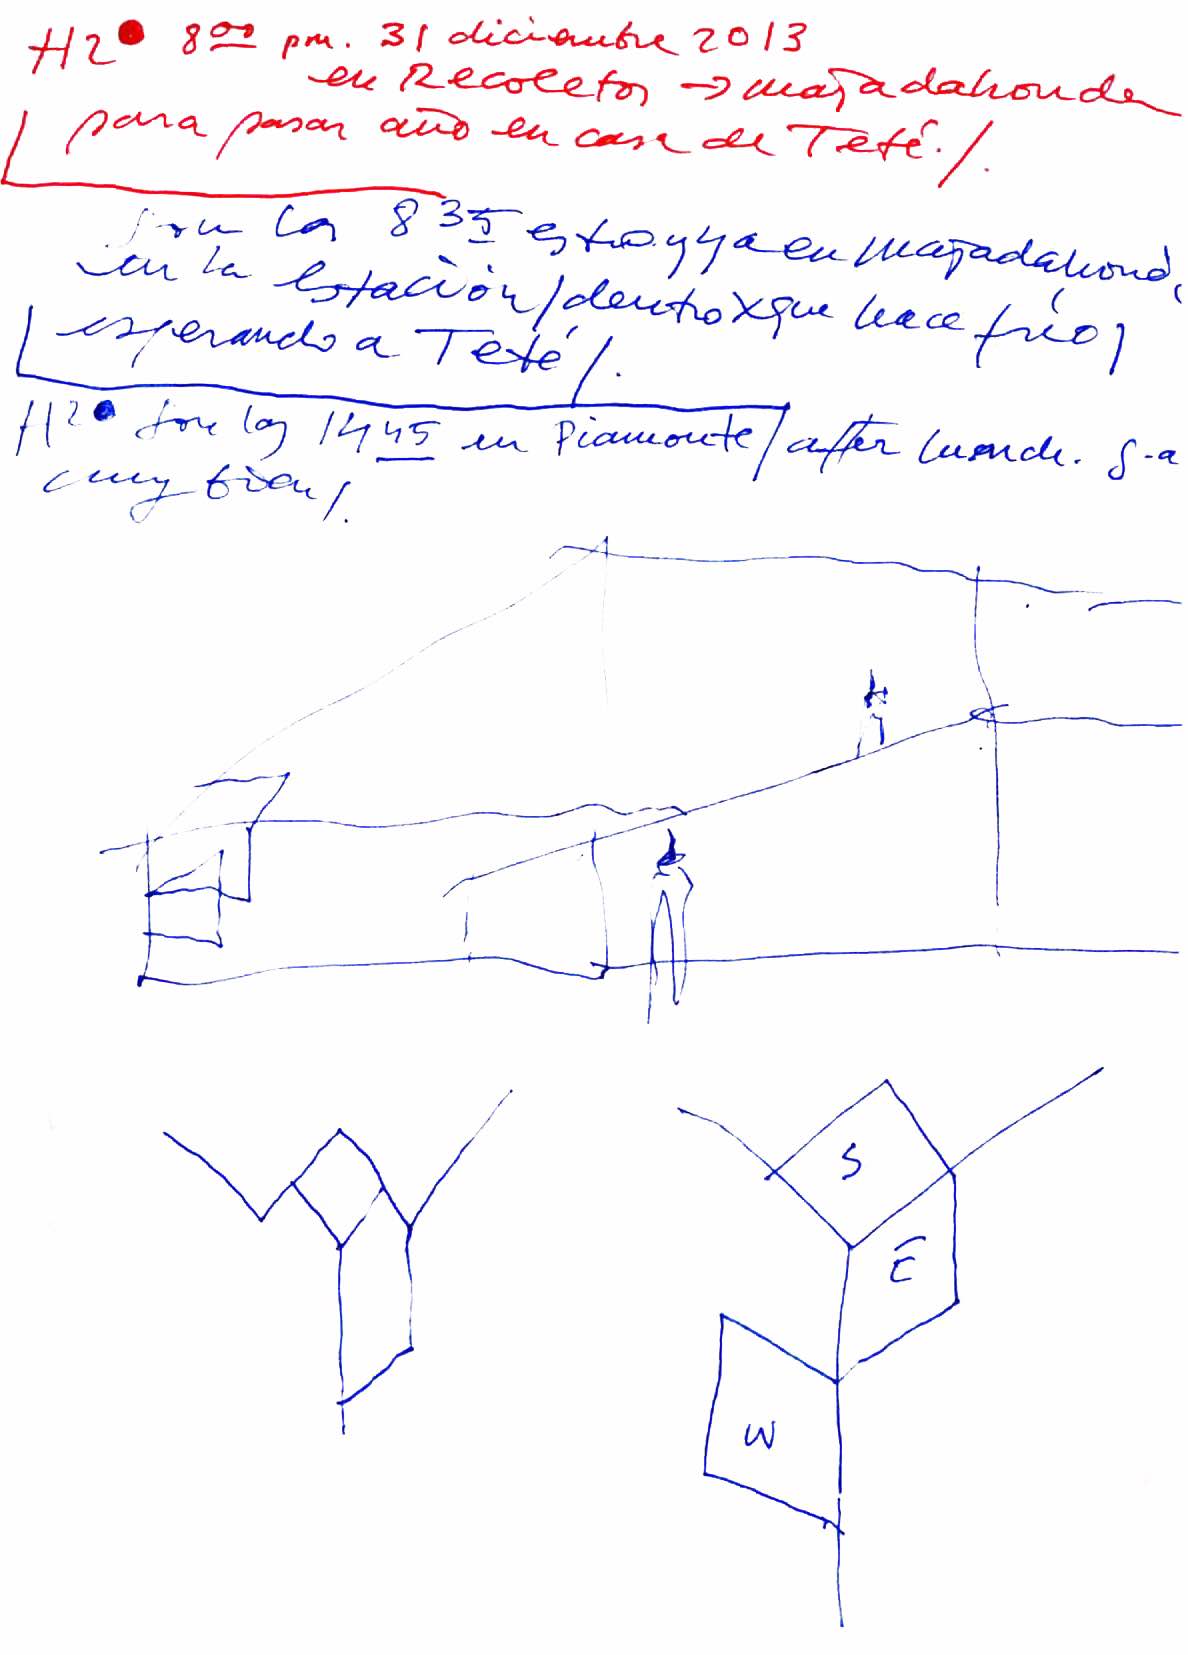 H2● 8ºº pm. 31 diciembre 2013
en Recoletos → majadahonda
para pasar año en casa de Teté./.
Son las 8 35 estoy ya en majadahond,
en la Estación/dentro xque hace frío/
esperando a Teté/.
H2● son las 14 45 en Piamonte/after lunch.
muy bien/.
S
E
W